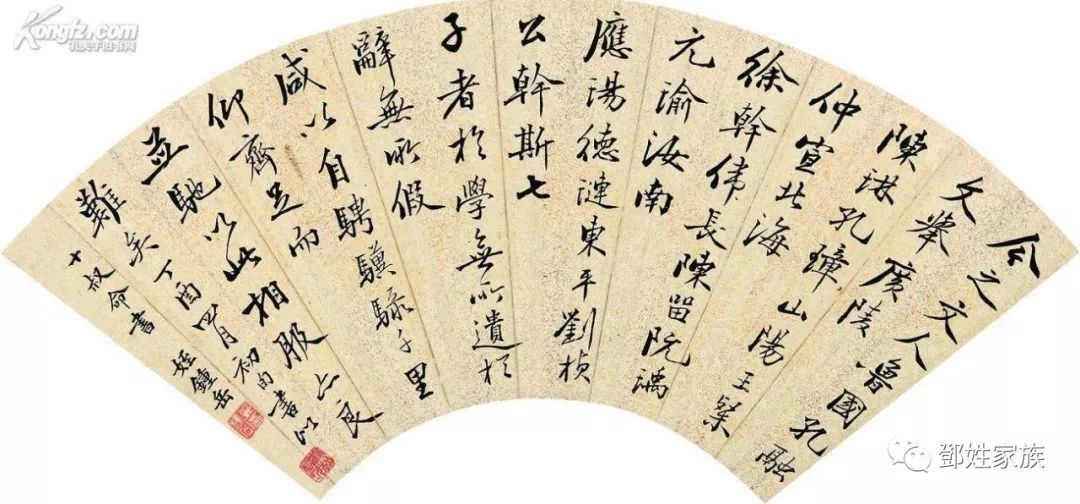 今之文人魯國孔融
文舉廣陵
陳琳孔璋山陽王粲
仲宣北海
徐幹偉長陳留阮瑀
元瑜汝南
應瑒德璉東平劉楨
公幹斯七
子者於學無所遺於
辭無所假
咸以自騁驥騄千里
仰齊足而
並馳以此相服亦良
難矣丁酉四月初書以
十叔命書 姪鍾岳
Kongfz.com
孔夫子旧书网
鄧姓家族